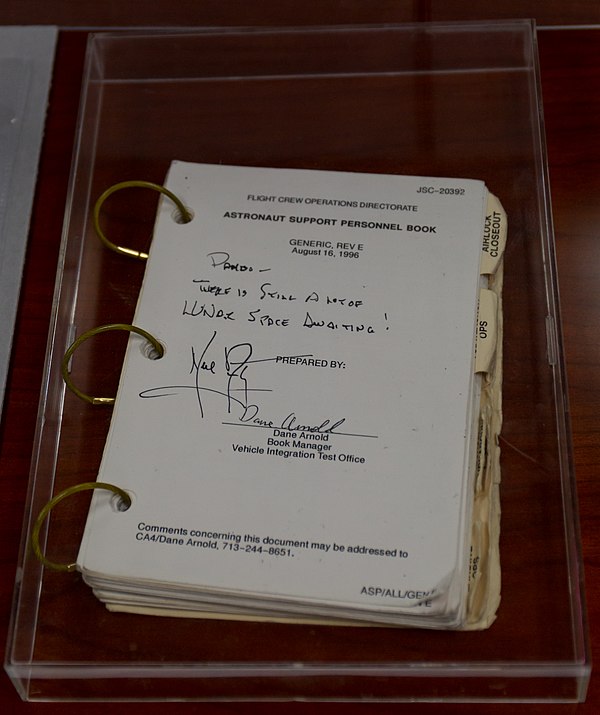 JSC-20392
FLIGHT CREW OPERATIONS DIRECTORATE
ASTRONAUT SUPPORT PERSONNEL BOOK
GENERIC, REV E
August 16, 1996
THERE IS STILL A LOT OF
LUNAR SPACE AWAITING!
PREPARED BY:
Dane Arnold
Dane Arnold
Book Manager
Vehicle Integration Test Office
Comments concerning this document may be addressed to
CA4/Dane Arnold, 713-244-8651.
ASP/ALL/GEN
E
AIRLOCK
CLOSEOUT
OPS